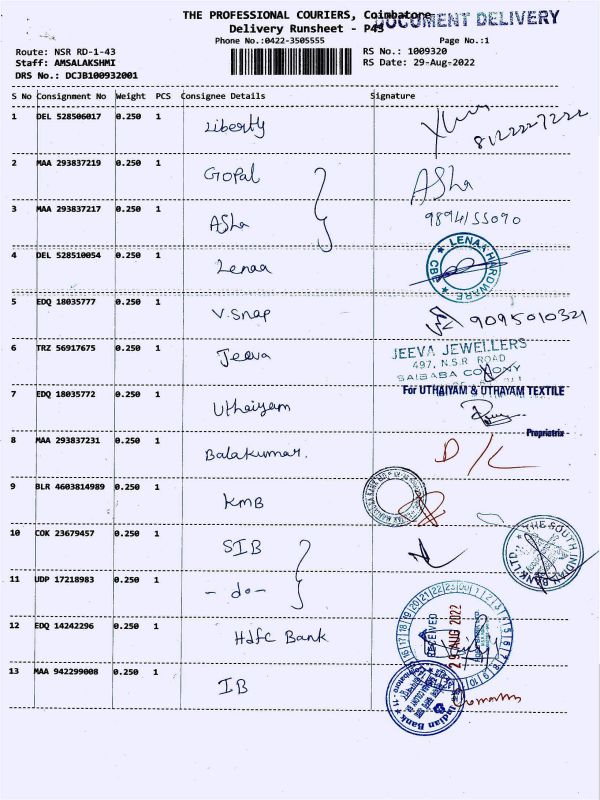 THE PROFESSIONAL COURIERS, Coimbatore
DOCUMENT DELIVERY
Delivery Runsheet - P45
Phone No.:0422-3505555 Page No.:1
Route: NSR RD-1-43 RS No.: 1009320
Staff: AMSALAKSHMI RS Date: 29-Aug-2022
DRS No.: DCJB100932001
S No Consignment No Weight PCS Consignee Details Signature
1 DEL 528506017 0.250 1 Liberty
2 MAA 293837219 0.250 1 Gopal ASha
3 MAA 293837217 0.250 1 ASha 9894155090
4 DEL 528510054 0.250 1 Lenaa LENAA HARDWARE CBE
5 EDQ 18035777 0.250 1 V.Snap 9095010321
6 TRZ 56917675 0.250 1 Jeeva JEEVA JEWELLERS
497, N.S.R. ROAD
SAIBABA COLONY
7 EDQ 18035772 0.250 1 Uthaiyam For UTHAIYAM & UTHAYAM TEXTILE
Proprietrix
8 MAA 293837231 0.250 1 Balakumar. D/L
9 BLR 4603814989 0.250 1 KMB
10 COK 23679457 0.250 1 SIB THE SOUTH INDIAN BANK LTD.
11 UDP 17218983 0.250 1 -do-
12 EDQ 14242296 0.250 1 Hdfc Bank RECEIVED
29 AUG 2022
13 MAA 942299008 0.250 1 IB Indian Bank